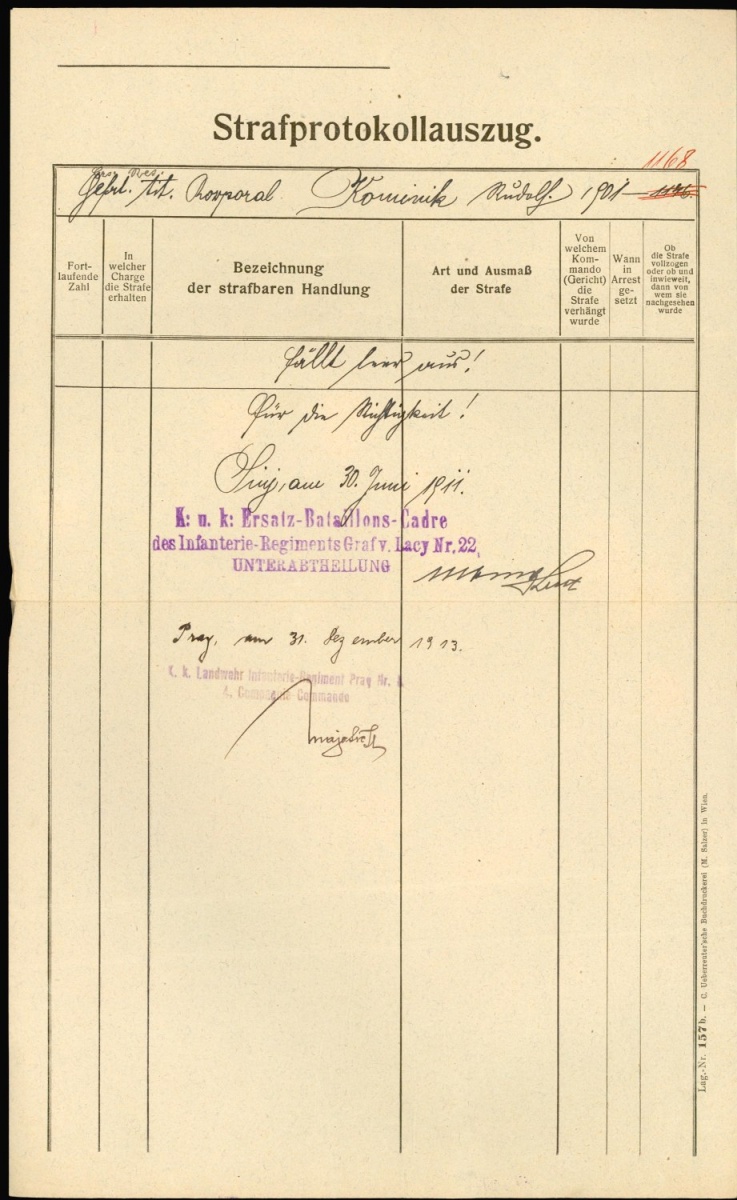 Strafprotokollauszug.
1168
Res.
Gefrt. tit. Korporal Kominik Rudolf. 1901
Fort-
laufende
Zahl
In
welcher
Charge
die Strafe
erhalten
Bezeichnung
der strafbaren Handlung
Art und Ausmaß
der Strafe
Von
welchem
Kom-
mando
(Gericht)
die
Strafe
verhängt
wurde
Wann
in
Arrest
ge-
setzt
Ob
die Strafe
vollzogen
oder ob und
inwieweit,
dann von
wem sie
nachgesehen
wurde
fällt leer aus!
Für die Richtigkeit!
am 30. Juni 1911.
K: u. k: Ersatz-Bataillons-Cadre
des Infanterie-Regiments Graf v. Lacy Nr. 22,
UNTERABTHEILUNG
Prag, am 31. Dezember 1913.
K. k. Landwehr Infanterie-Regiment Prag Nr. 8
4. Compagnie Commando
Lag.-Nr. 157b. — C. Ueberreuter'sche Buchdruckerei (M. Salzer) in Wien.